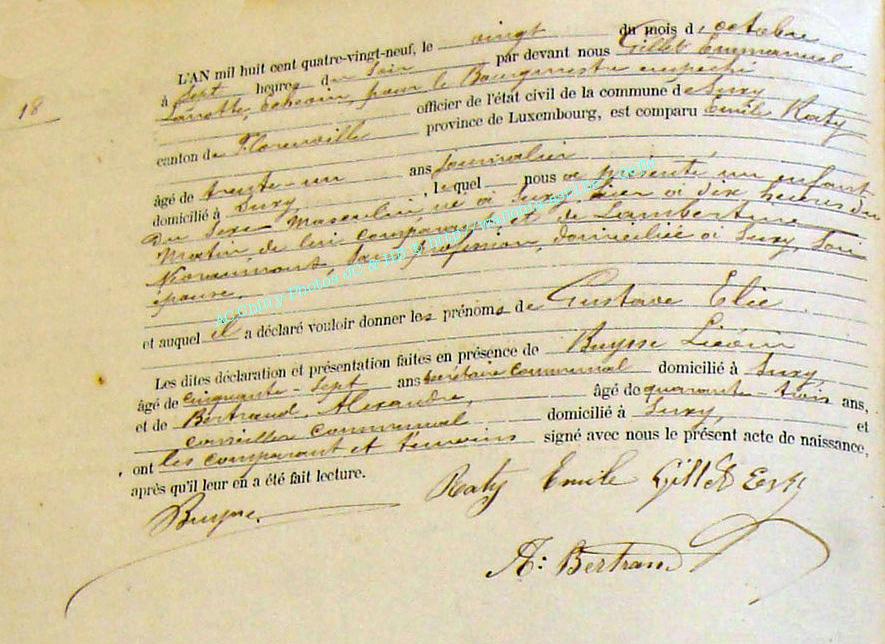 18
L'AN mil huit cent quatre-vingt-neuf, le vingt du mois d'octobre
à Sept heures du Soir par devant nous Gillet Emmanuel
échevin, pour le Bourgmestre empêché
officier de l'état civil de la commune de Suxy
canton de Florenville province de Luxembourg, est comparu Emile Raty
âgé de trente-un ans Journalier
domicilié à Suxy, lequel nous a présenté un enfant
du Sexe Masculin né à Suxy hier à dix heures du
Matin de lui comparant et de Lambertine
Noraimont, Sans profession, domiciliée à Suxy, Son
épouse,
et auquel il a déclaré vouloir donner les prénoms de Gustave Elie
Les dites déclaration et présentation faites en présence de Buysse
âgé de Cinquante-Sept ans Secrétaire Communal domicilié à Suxy,
et de Bertrand Alexandre, âgé de quarante-trois ans,
Conseiller Communal domicilié à Suxy, et
ont les comparant et témoins signé avec nous le présent acte de naissance,
après qu'il leur en a été fait lecture.
Raty Emile Gillet
Buysse.
A: Bertrand